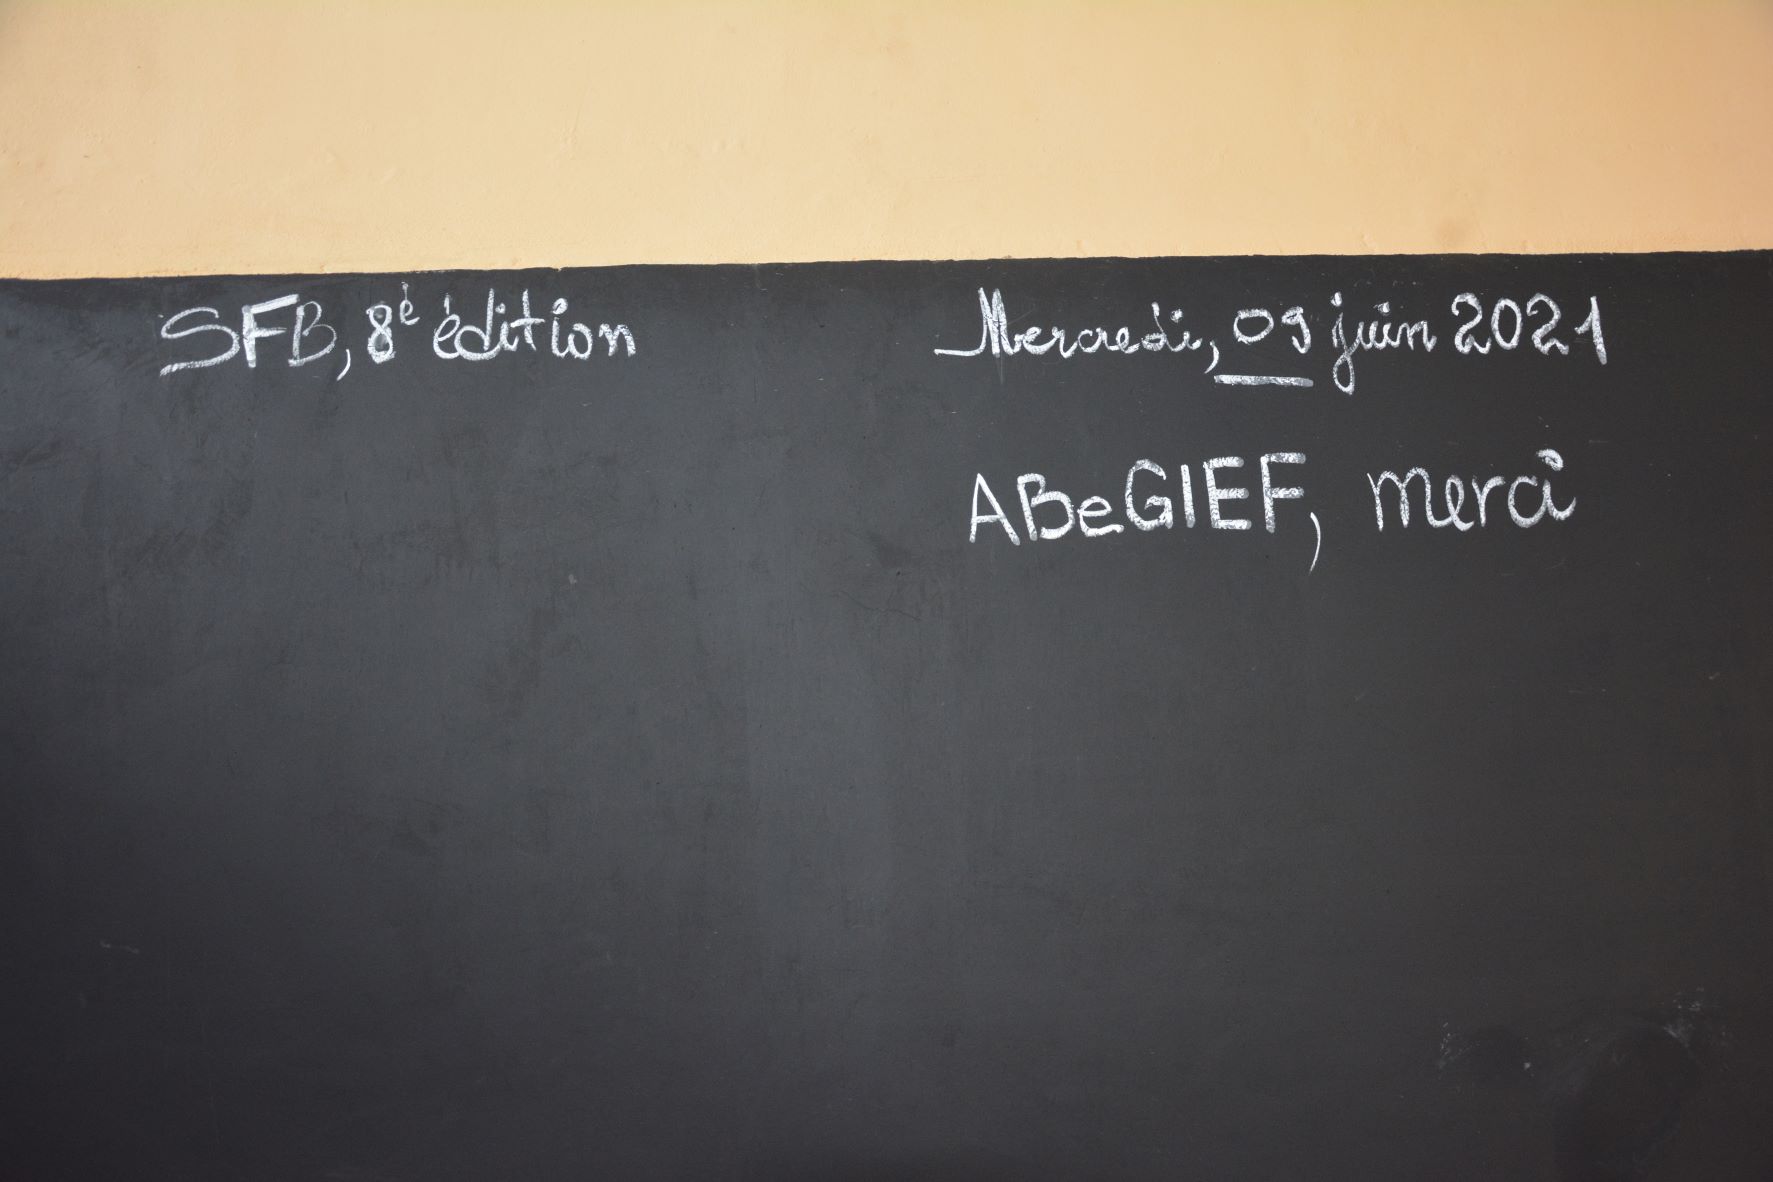 SFB, 8è édition
Mercredi, 09 juin 2021
ABeGIEF, merci